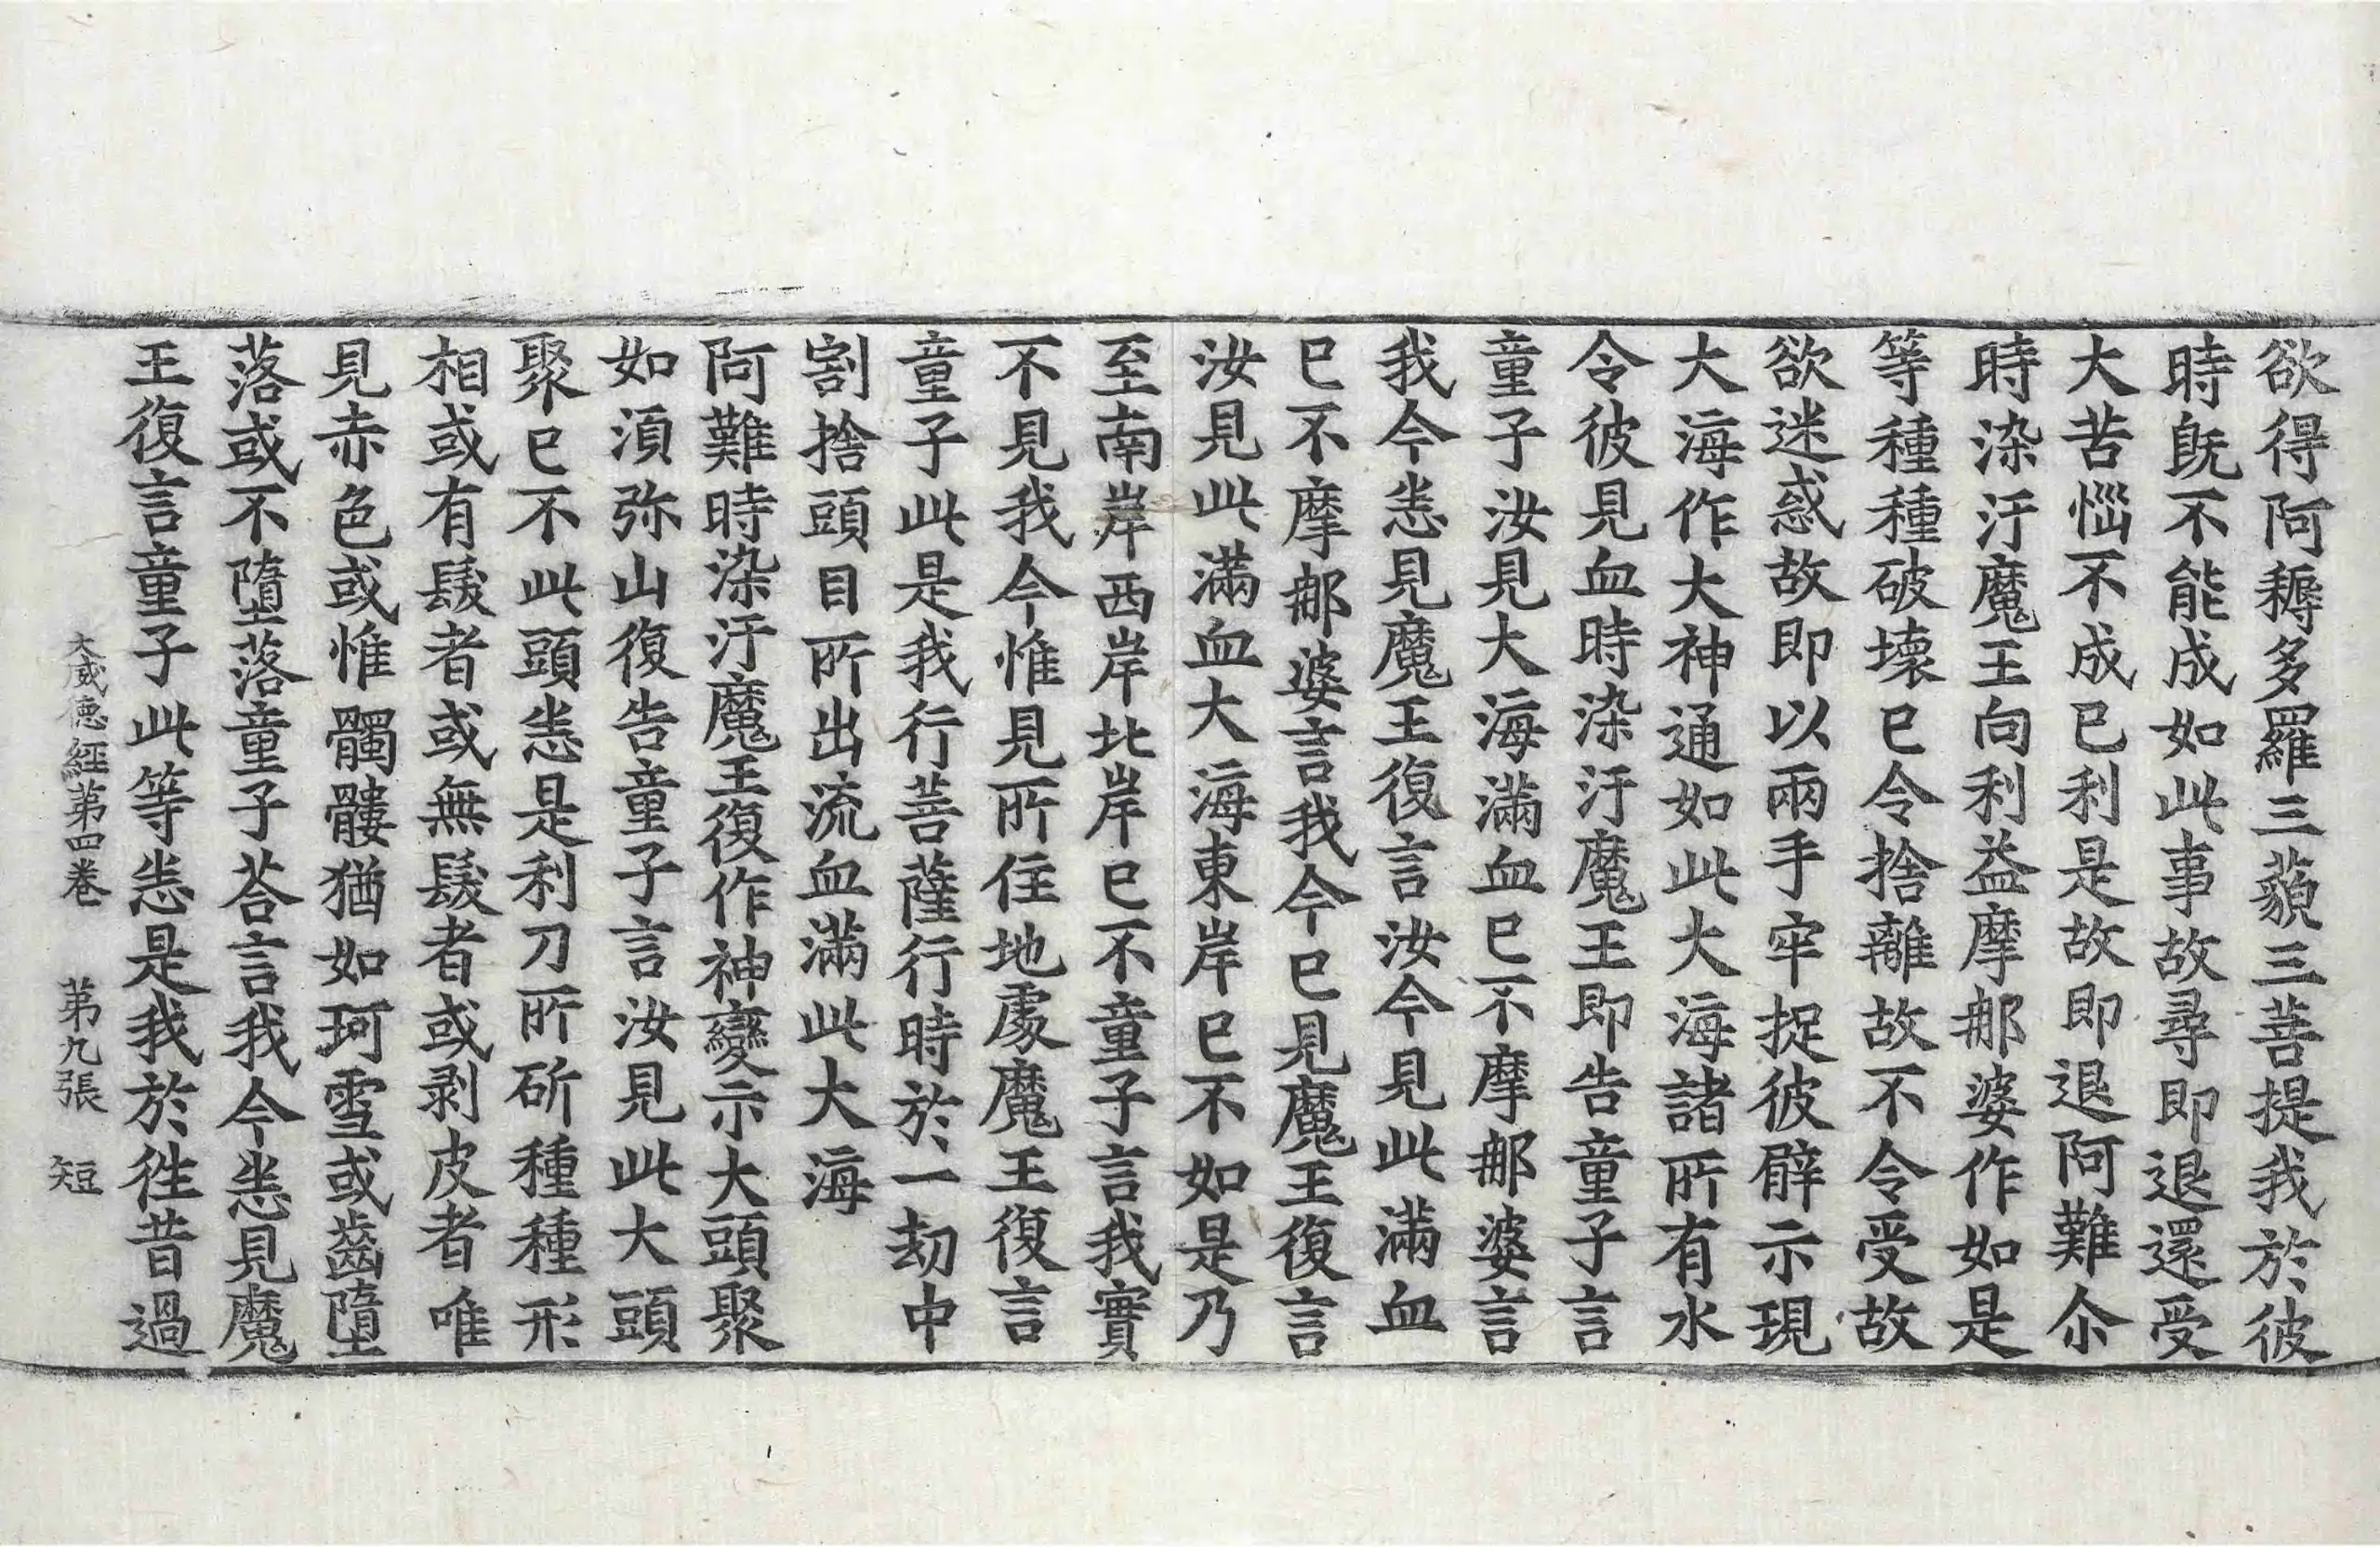 欲得阿耨多羅三藐三菩提我於彼
時既不能成如此事故尋即退還受
大苦惱不成已利是故即退阿難尒
時染汙魔王向利益摩那婆作如是
等種種破壞已令捨離故不令受故
欲迷惑故即以兩手牢捉彼臂示現
大海作大神通如此大海諸所有水
令彼見血時染汙魔王即告童子言
童子汝見大海滿血已不摩那婆言
我今悉見魔王復言汝今見此滿血
已不摩那婆言我今已見魔王復言
汝見此滿血大海東岸已不如是乃
至南岸西岸北岸已不童子言我實
不見我今惟見所住地處魔王復言
童子此是我行菩薩行時於一劫中
割捨頭目所出流血滿此大海
阿難時染汙魔王復作神變示大頭聚
如須弥山復告童子言汝見此大頭
聚已不此頭悉是利刀所斫種種形
相或有髮者或無髮者或剥皮者唯
見赤色或惟髑髏猶如珂雪或齒墮
落或不墮落童子荅言我今悉見魔
王復言童子此等悉是我於徃昔過
大威德經第四卷 第九張 短